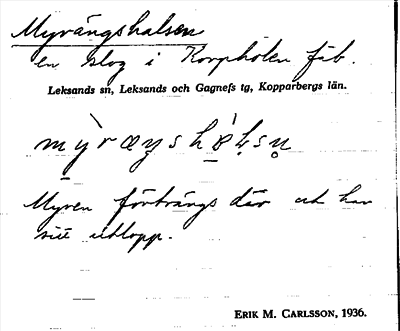 Myrängshalsen
en slog i Korpholen fäb.
Leksands sn, Leksands och Gagnefs tg, Kopparbergs län.
Myren förträngs där och har
sitt utlopp.
ERIK M. CARLSSON, 1936.